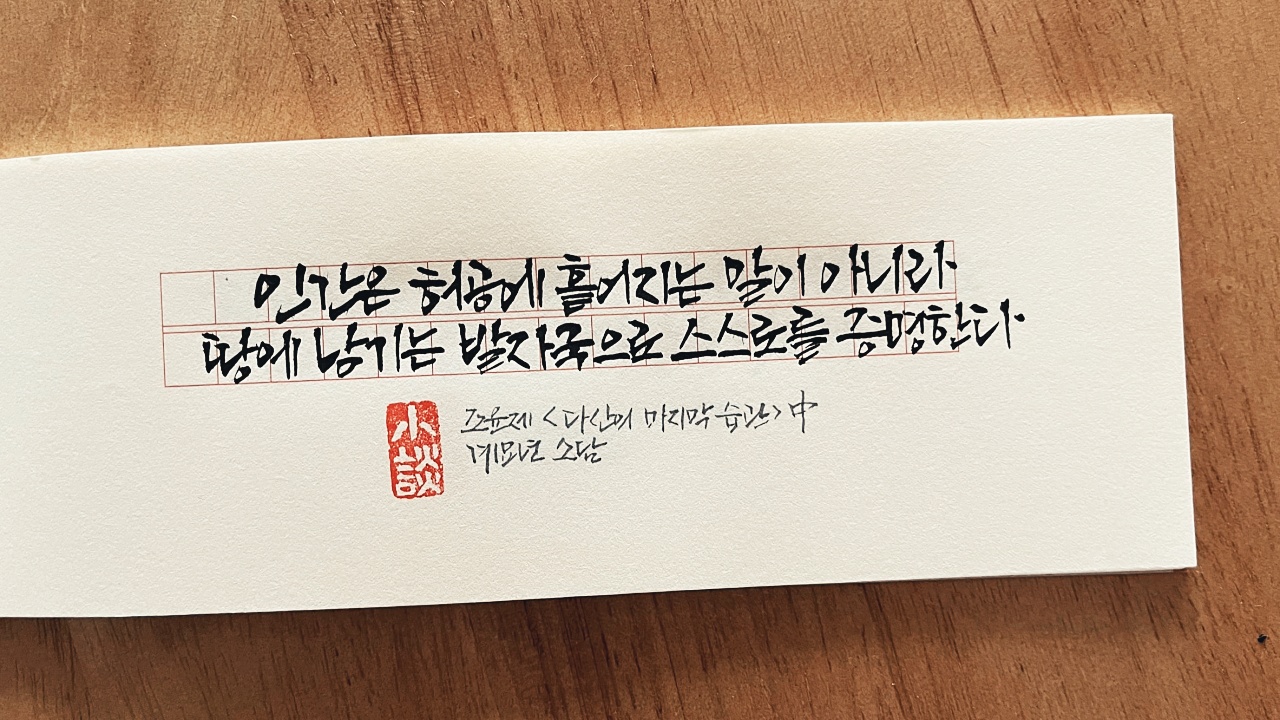 인간은 허공에 흩어지는 말이 아니라
땅에 남기는 발자국으로 스스로를 증명한다
조윤제 <다산의 마지막 습관> 中
계묘년 소담
小談